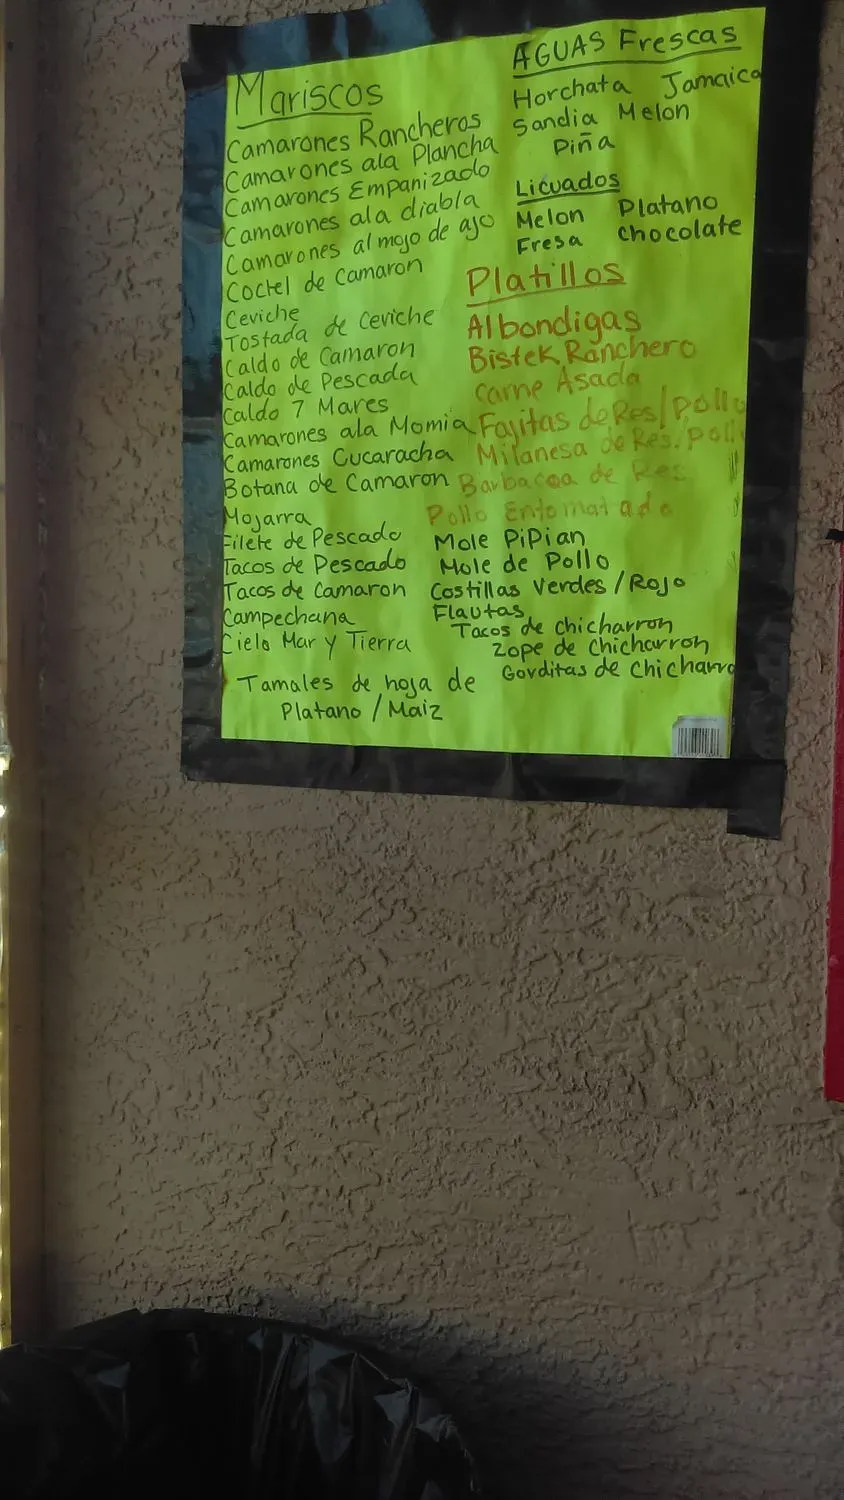 Mariscos
Camarones Rancheros
Camarones ala Plancha
Camarones Empanizado
Camarones ala diabla
Camarones al mojo de ajo
Coctel de Camaron
Ceviche
Tostada de Ceviche
Caldo de Camaron
Caldo de Pescada
Caldo 7 Mares
Camarones ala Momia
Camarones Cucaracha
Botana de Camaron
Mojarra
Filete de Pescado
Tacos de Pescado
Tacos de Camaron
Campechana
Cielo Mar y Tierra
Tamales de hoja de
Platano / Maiz
AGUAS Frescas
Horchata Jamaica
Sandia Melon
Piña
Licuados
Melon Platano
Fresa chocolate
Platillos
Albondigas
Bistek Ranchero
Carne Asada
Fajitas de Res/pollo
Milanesa de Res. poll
Barbacoa de Res
Pollo Entomatado
Mole PiPian
Mole de Pollo
Costillas Verdes / Rojo
Flautas
Tacos de chicharron
Zope de Chicharron
Gorditas de Chicharro